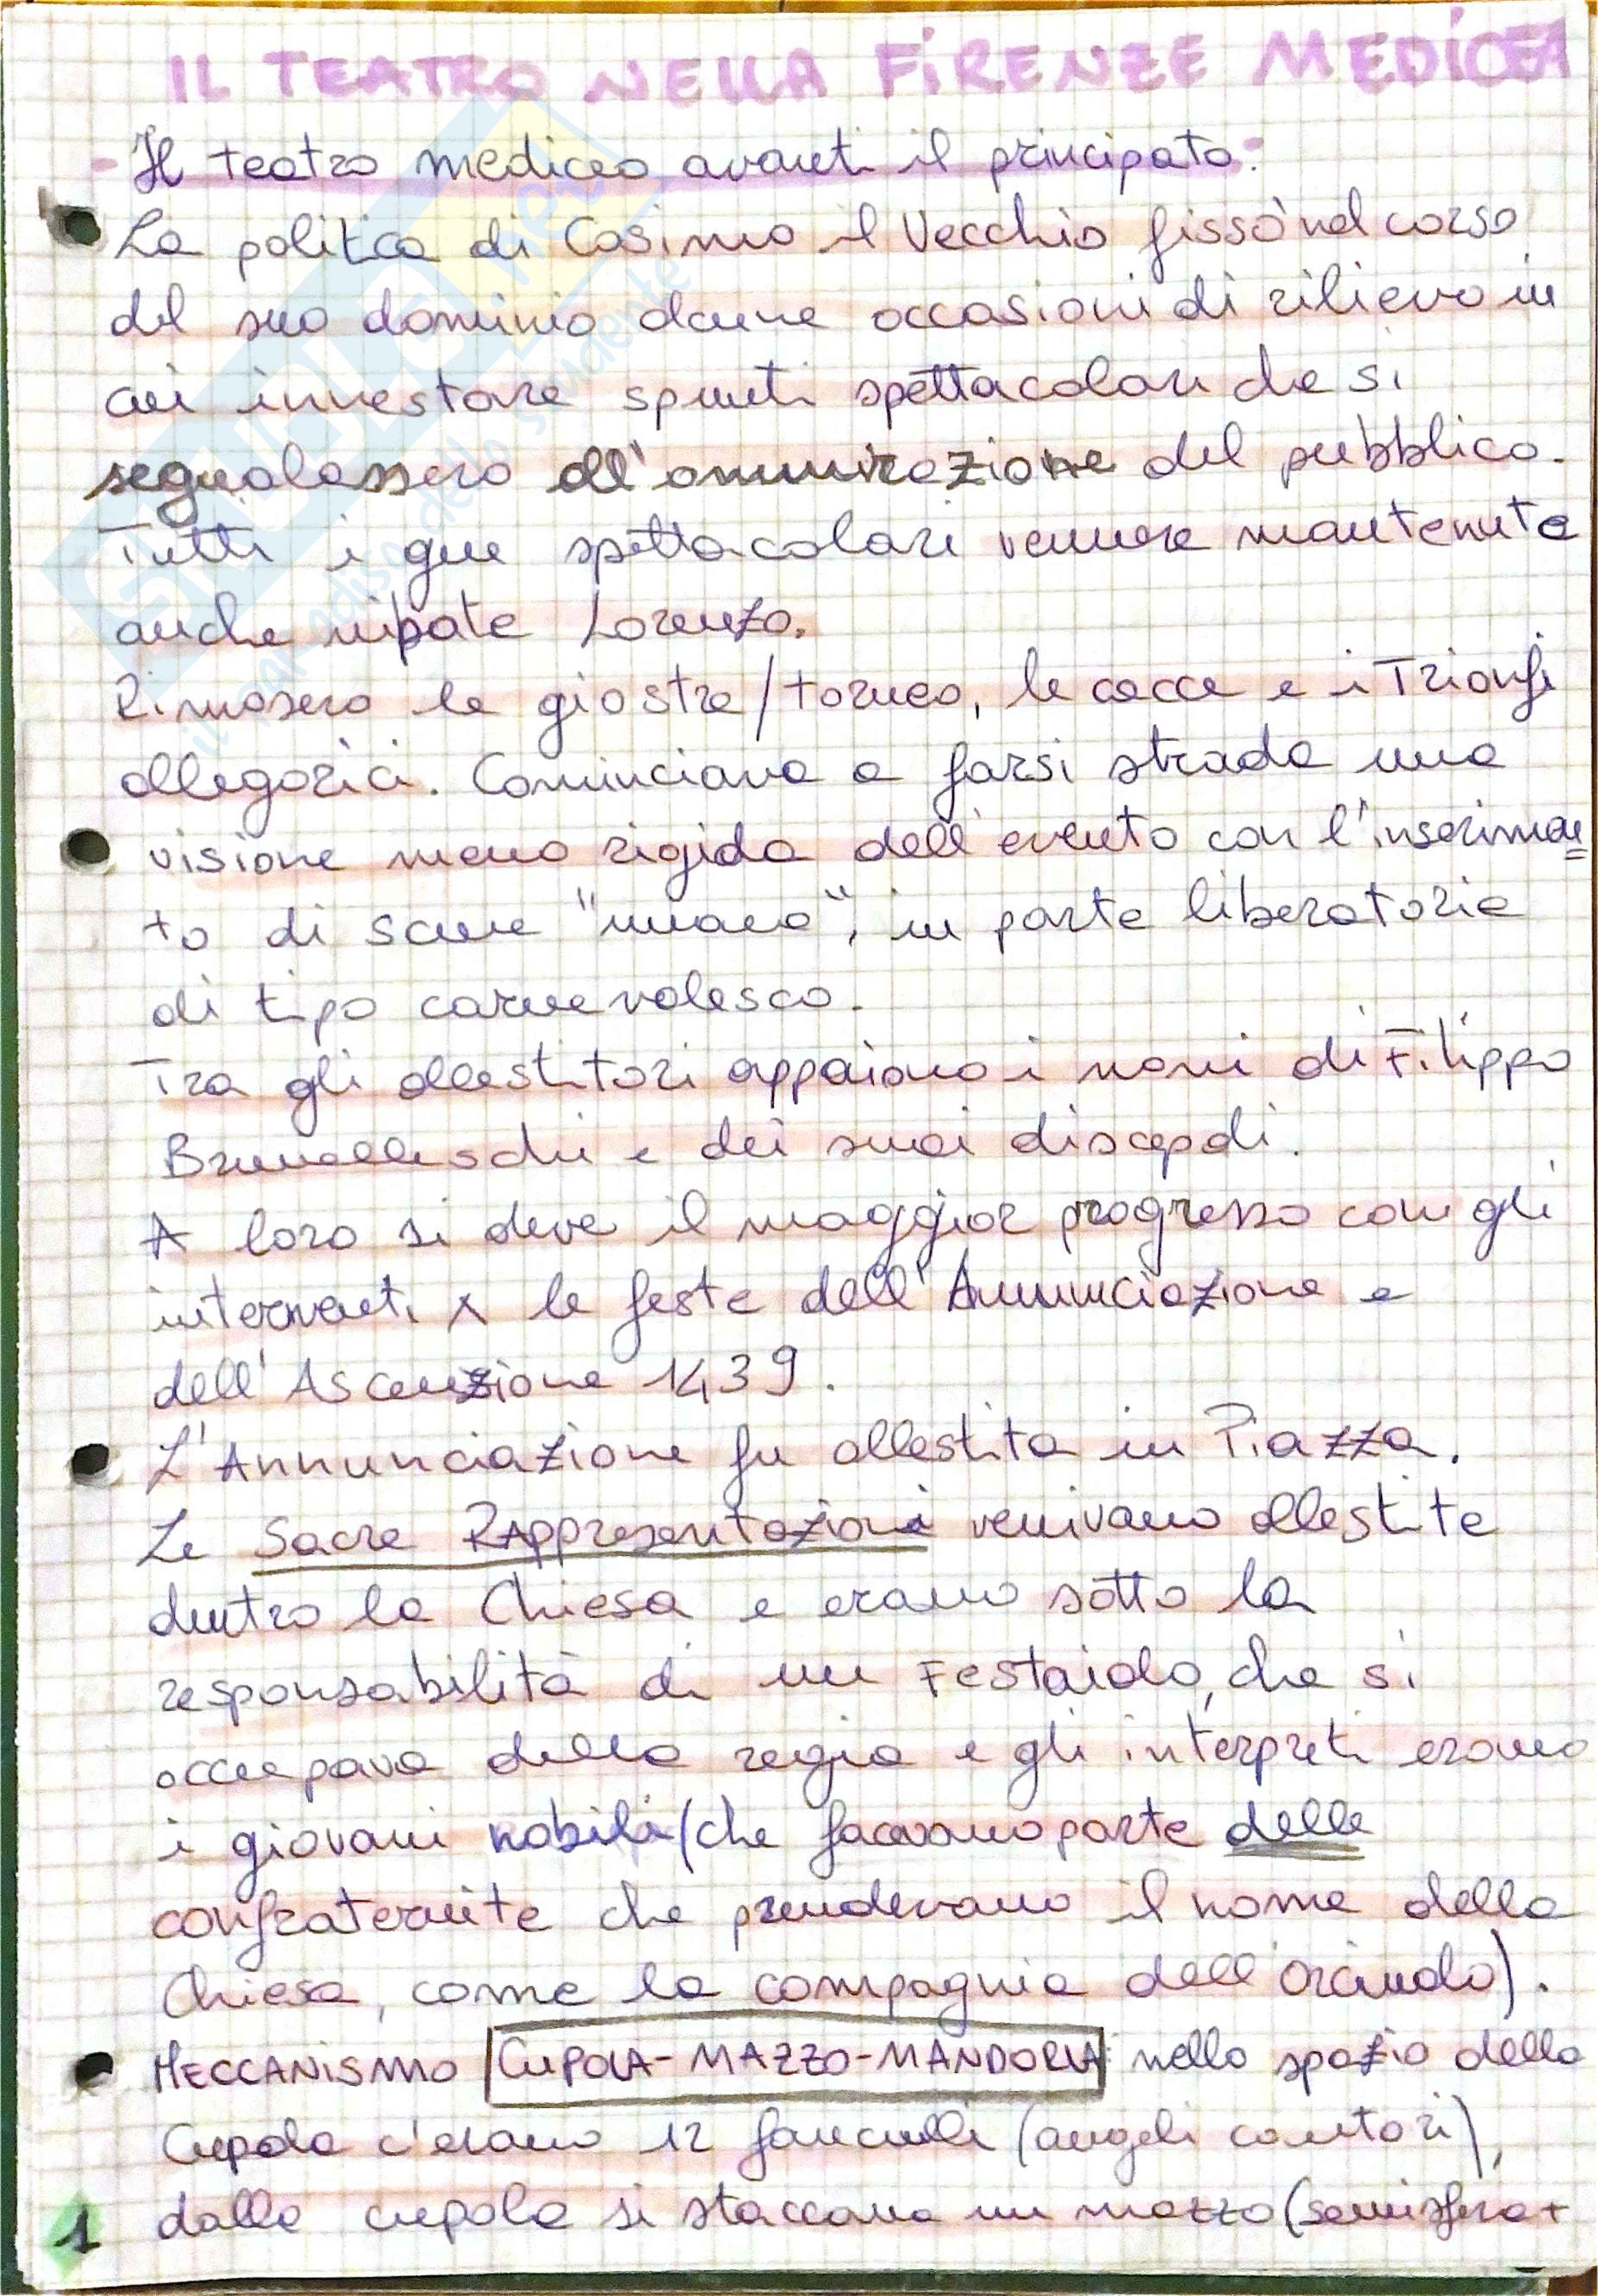 IL TEATRO NELLA FIRENZE MEDICEA
- Il teatro mediceo avanti il principato:
La politica di Cosimo il Vecchio fissò nel corso
del suo dominio alcune occasioni di rilievo in
cui innestare spunti spettacolari che si
segnalassero all'ammirazione del pubblico.
Tutti i gen spettacolari vennero mantenute
anche nipote Lorenzo.
Rimasero le giostre/torneo, le cacce e i Trionfi
allegorici. Cominciava a farsi strada una
visione meno rigida dell'evento con l'inserimen=
to di scene "umane", in parte liberatorie
di tipo carnevalesco.
Tra gli allestitori appaiono i nomi di Filippo
Brunelleschi e dei suoi discepoli.
A loro si deve il maggior progresso con gli
interventi x le feste dell'Annunciazione e
dell'Ascensione 1439.
L'Annunciazione fu allestita in Piazza.
Le Sacre Rappresentazioni venivano allestite
dentro la Chiesa e erano sotto la
responsabilità di un Festaiolo, che si
occupava della regia e gli interpreti erano
i giovani nobili (che facevano parte delle
confraternite che prendevano il nome della
Chiesa, come la compagnia dell'Orciuolo).
MECCANISMO CUPOLA-MAZZO-MANDORLA: nello spazio della
Cupola c'erano 12 fanciulli (angeli cantori),
dalla cupola si staccava un mazzo (semisfera+
1
STUDENTI.net
il paradiso dello studente